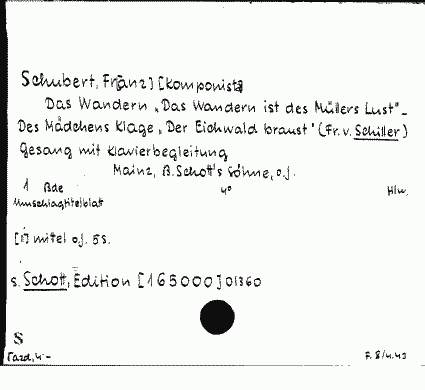 Schubert, Franz] [Komponist]
Das Wandern „Das Wandern ist des Müllers Lust"_
Des Mädchens Klage „Der Eichwald braust" (Fr. v. Schiller)
Gesang mit Klavierbegleitung
Mainz, B. Schott's Söhne, o.J.
1 Bde 4° Hlw.
Umschlagtitelblatt
[1] mittel o.J. 5 S.
s. Schott, Edition [165000] 01360
S
F. 8/4.43